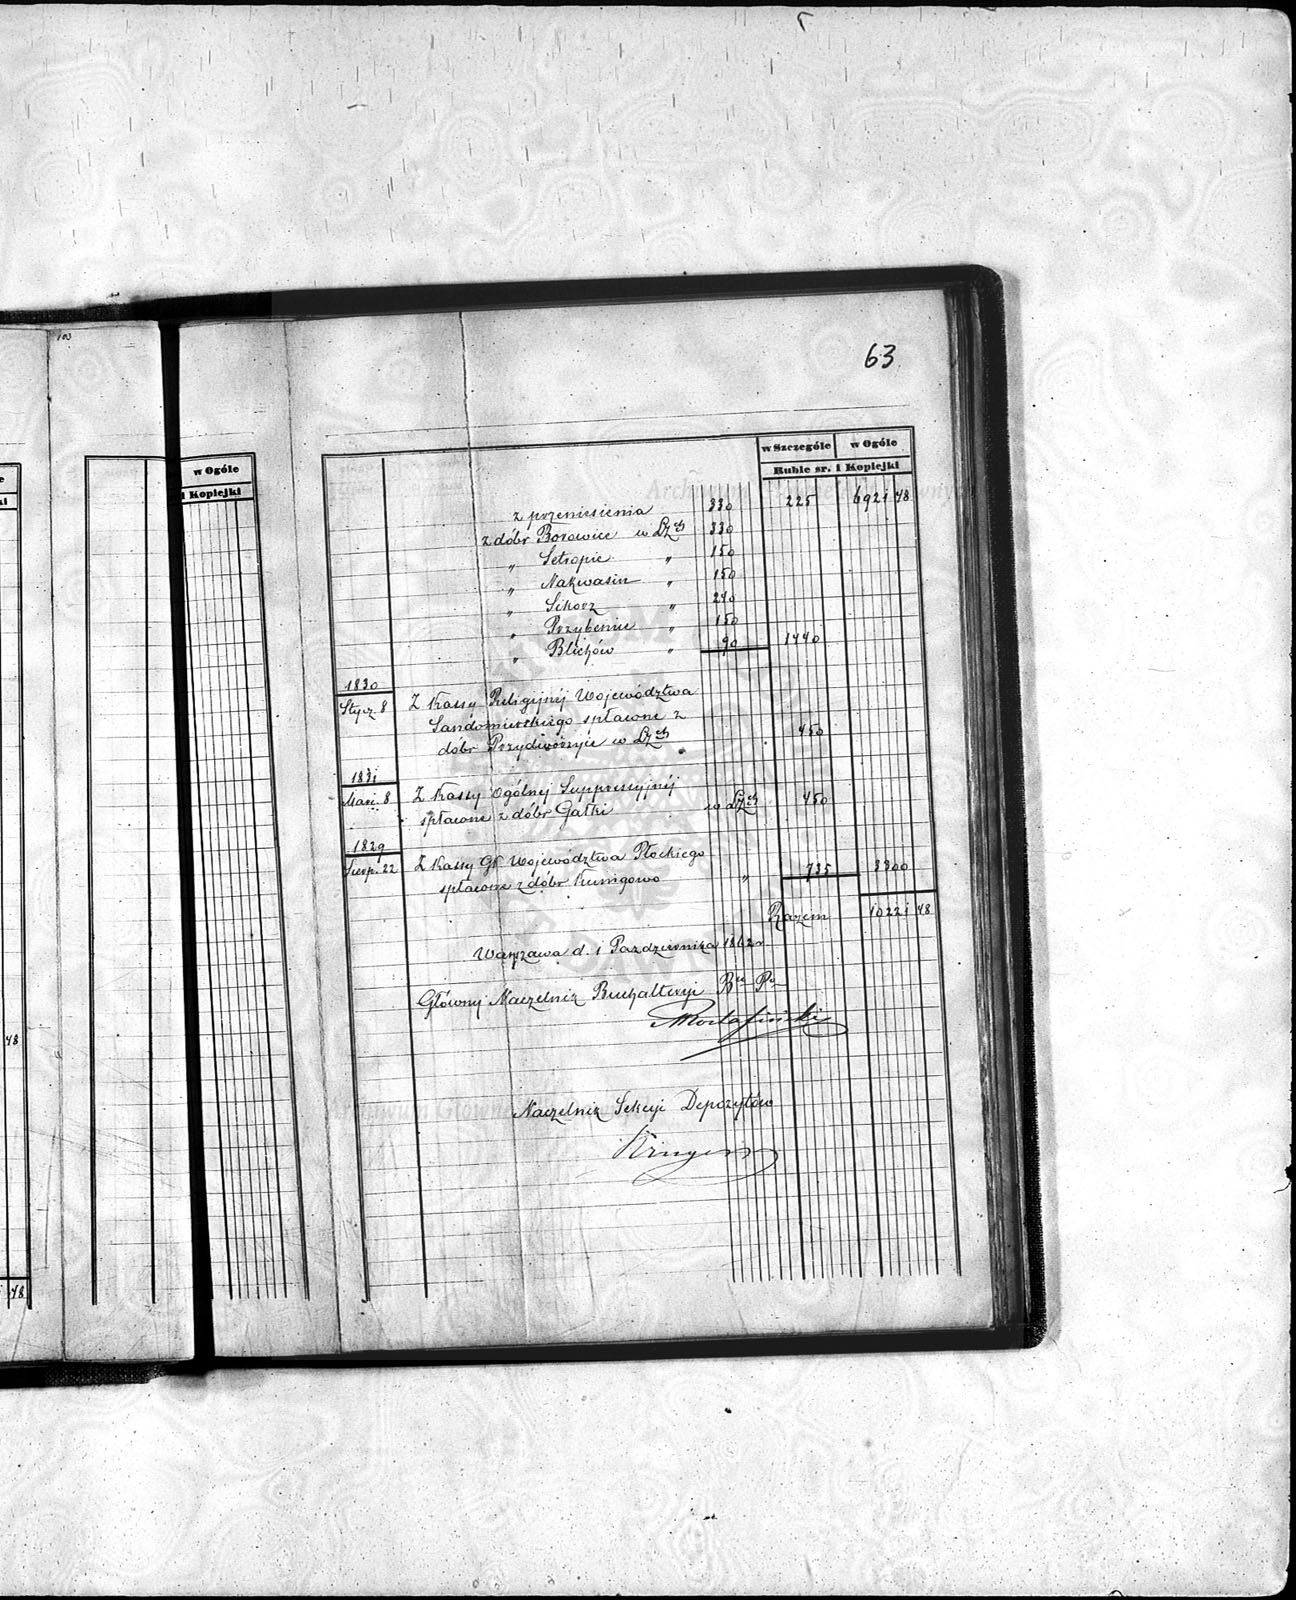 103
w Ogóle
i Kopiejki
48
48
63
w Szczególe w Ogóle
Ruble sr. i Kopiejki
z przeniesienia 330 225 6921 48
z dóbr Borowice w Lzch 330
" Setropie " 150
" Nakwasin " 150
" Sikorz " 240
" " 150
" Blichów " 90 1440
1830
Stycz. 8 Z Kassy Religijnéj Województwa
Sandomierskiego spłacone z
dóbr w Lzch 450
1831
Mar. 8 Z Kassy Ogólnéj Suppressyjnéj
spłacone z dóbr Gałki w Lzch 450
1829
Sierp. 22 Z Kassy Gł Województwa Płockiego
spłacone z dóbr Kunigowo " 735 3300
Razem 10221 48
Warszawa d. 1 Października 1862 r.
Główny Naczelnik Buchalteryi
Naczelnik Sekcyi Depozytów